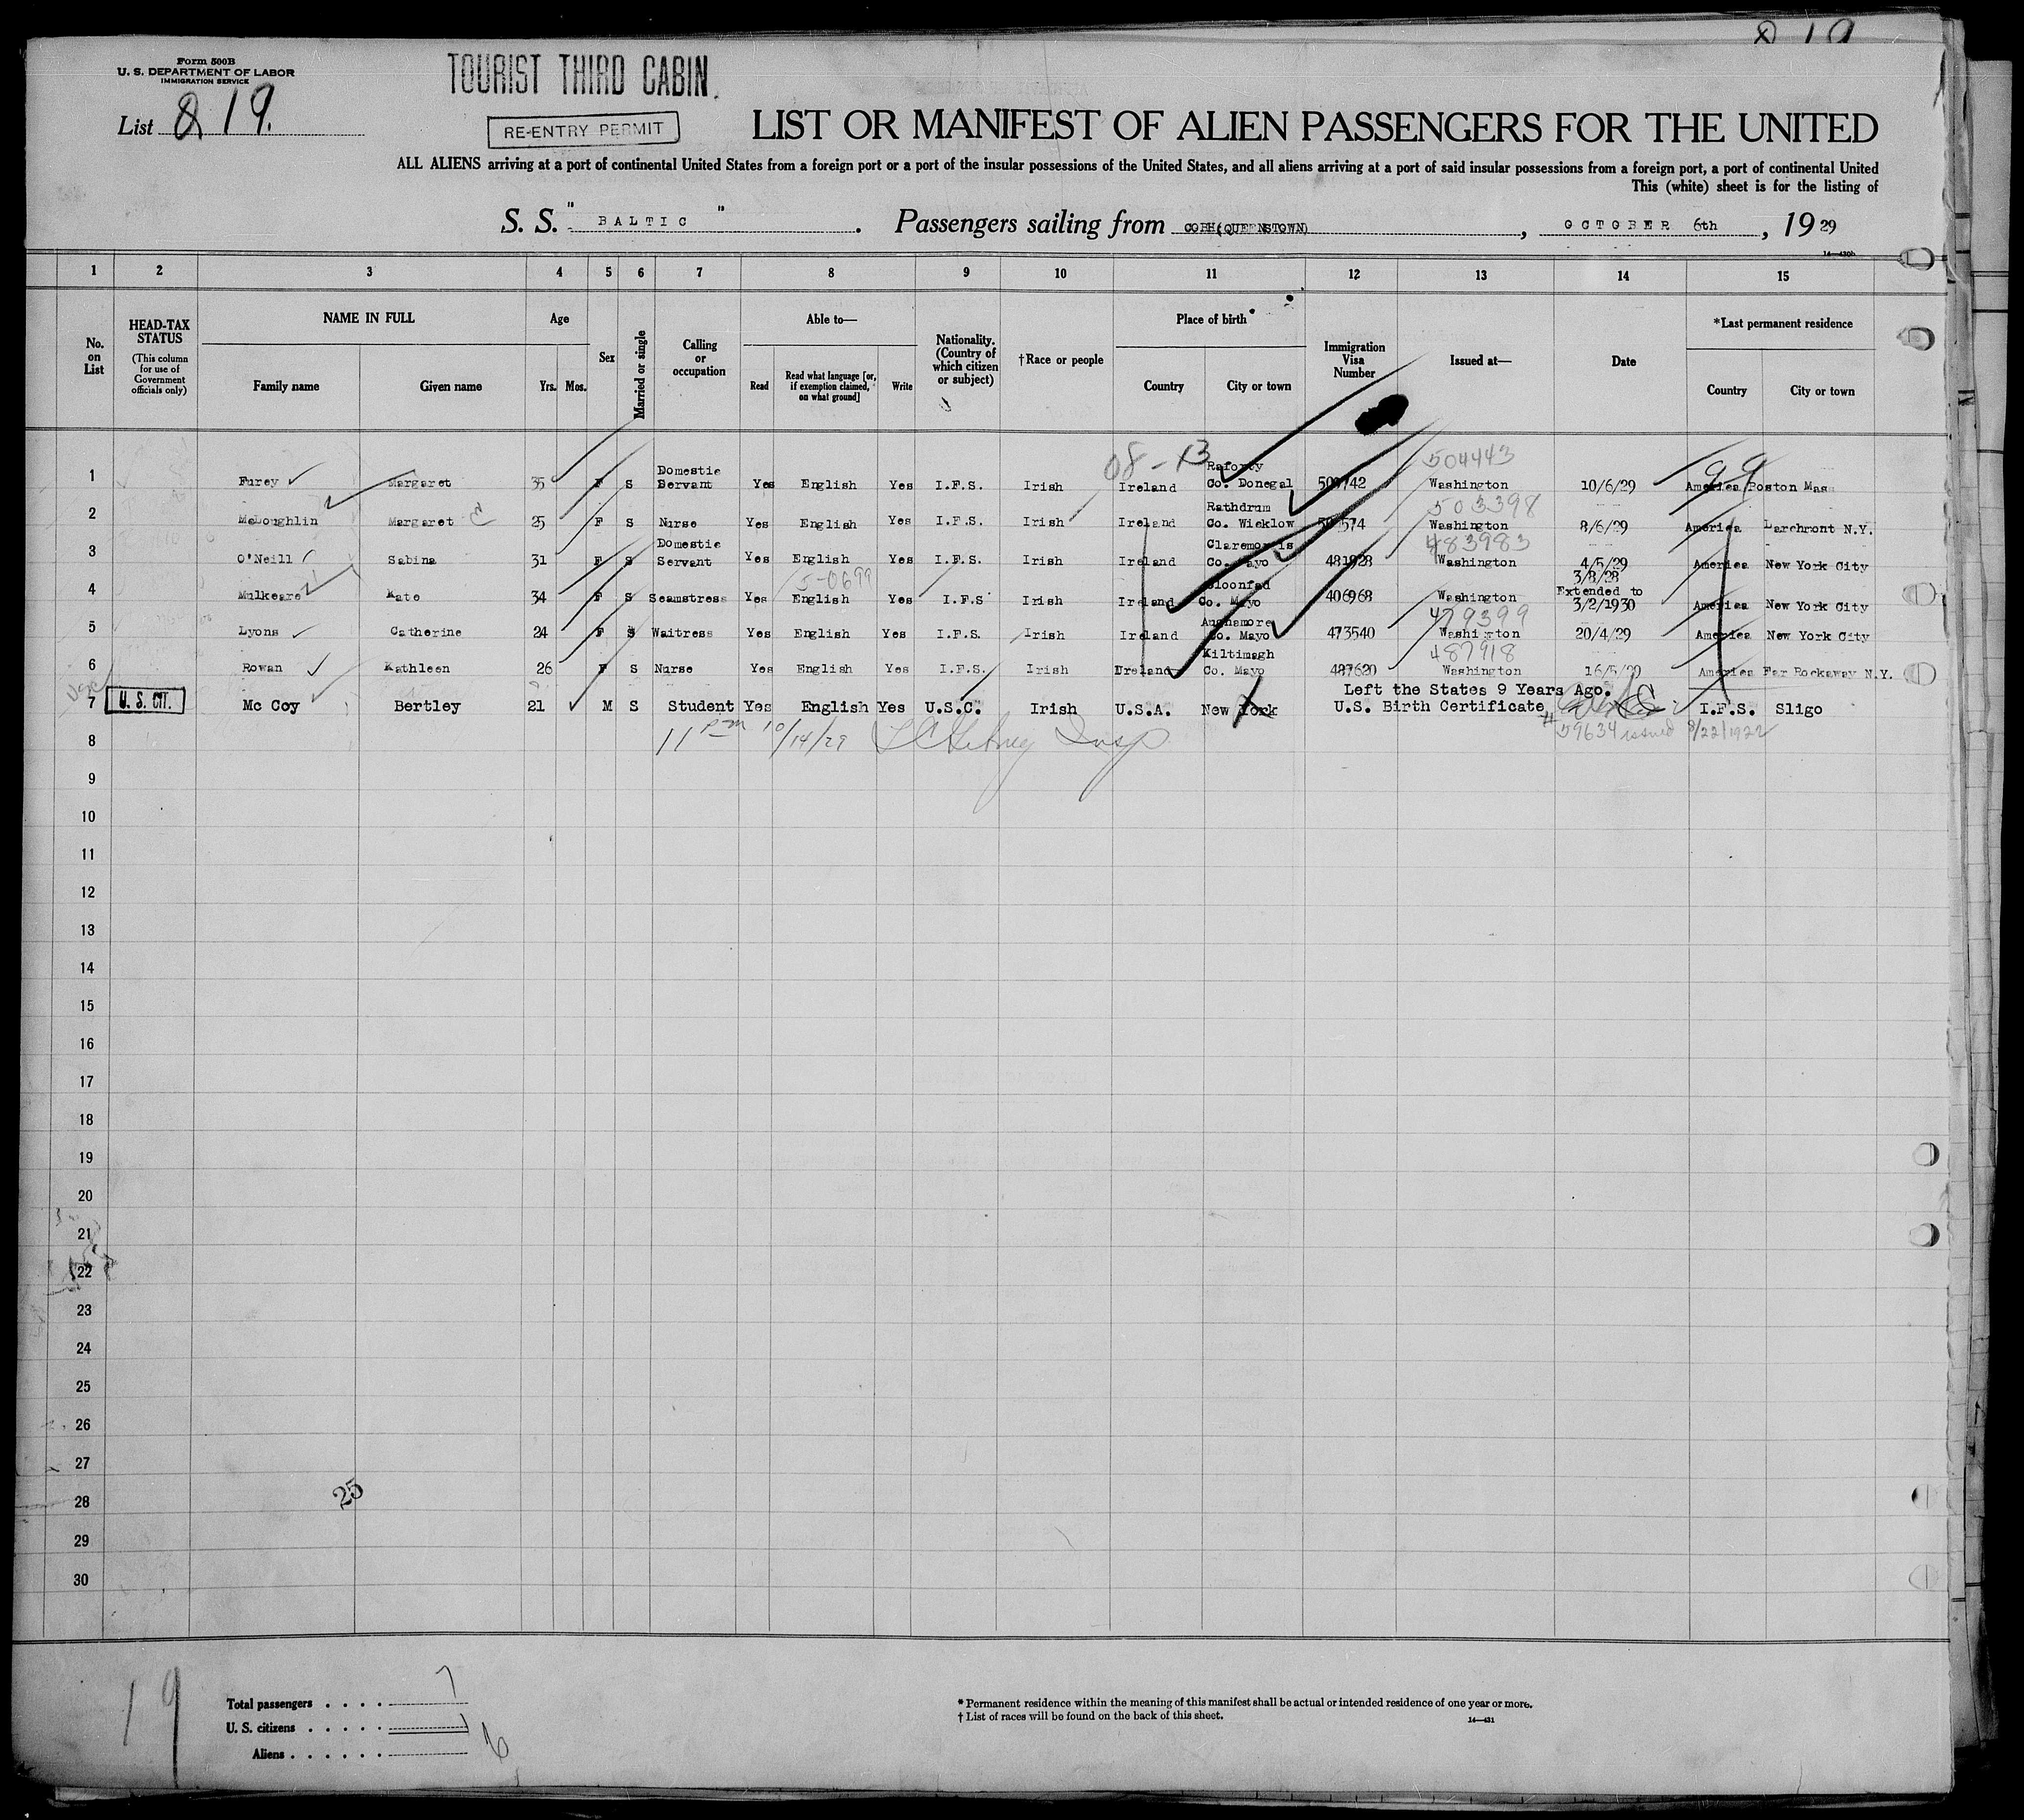 8 19
Form 500B
U. S. DEPARTMENT OF LABOR
IMMIGRATION SERVICE
TOURIST THIRD CABIN
List 8 19.
RE-ENTRY PERMIT
LIST OR MANIFEST OF ALIEN PASSENGERS FOR THE UNITED
ALL ALIENS arriving at a port of continental United States from a foreign port or a port of the insular possessions of the United States, and all aliens arriving at a port of said insular possessions from a foreign port, a port of continental United
This (white) sheet is for the listing of
S. S. " BALTIC " . Passengers sailing from COBH(QUEENSTOWN) , OCTOBER 6th , 19 29
14—430b
1 2 3 4 5 6 7 8 9 10 11 12 13 14 15
No. on List
HEAD-TAX STATUS (This column for use of Government officials only)
NAME IN FULL Family name Given name
Age Yrs. Mos.
Sex
Married or single
Calling or occupation
Able to— Read Read what language [or, if exemption claimed, on what ground] Write
Nationality. (Country of which citizen or subject)
†Race or people
Place of birth Country City or town
Immigration Visa Number
Issued at—
Date
*Last permanent residence Country City or town
08-13 504443 99
1 Furey Margaret 35 F S Domestic Servant Yes English Yes I.F.S. Irish Ireland Co. Donegal Washington 10/6/29 America Boston Mass
503398
2 McLoughlin Margaret E 25 F S Nurse Yes English Yes I.F.S. Irish Ireland Rathdrum Co. Wicklow Washington 8/6/29 America Larchmont N.Y.
483983
3 O'Neill Sabina 31 F S Domestic Servant Yes English Yes I.F.S. Irish Ireland Claremorris Co. Mayo 481928 Washington 4/5/29 America New York City
5-0699
4 Mulkeare Kate 34 F S Seamstress Yes English Yes I.F.S Irish Ireland Cloonfad Co. Mayo 406968 Washington 3/8/28 Extended to 3/2/1930 America New York City
479399
5 Lyons Catherine 24 F S Waitress Yes English Yes I.F.S. Irish Ireland Aughamore Co. Mayo 473540 Washington 20/4/29 America New York City
487918
6 Rowan Kathleen 26 F S Nurse Yes English Yes I.F.S. Irish Ireland Kiltimagh Co. Mayo 487620 Washington 16/5/29 America Far Rockaway N.Y.
Left the States 9 Years Ago.
7 U. S. CIT. Mc Coy Bertley 21 M S Student Yes English Yes U.S.C. Irish U.S.A. New York U.S. Birth Certificate I.F.S. Sligo
# 59634 issued 8/22/1922
8 11 pm 10/14/29 Insp
9
10
11
12
13
14
15
16
17
18
19
20
21
22
23
24
25
26
27
25
28
29
30
19
Total passengers . . . . 7
U. S. citizens . . . . . 1
Aliens . . . . . . 6
* Permanent residence within the meaning of this manifest shall be actual or intended residence of one year or more.
† List of races will be found on the back of this sheet.
14—431